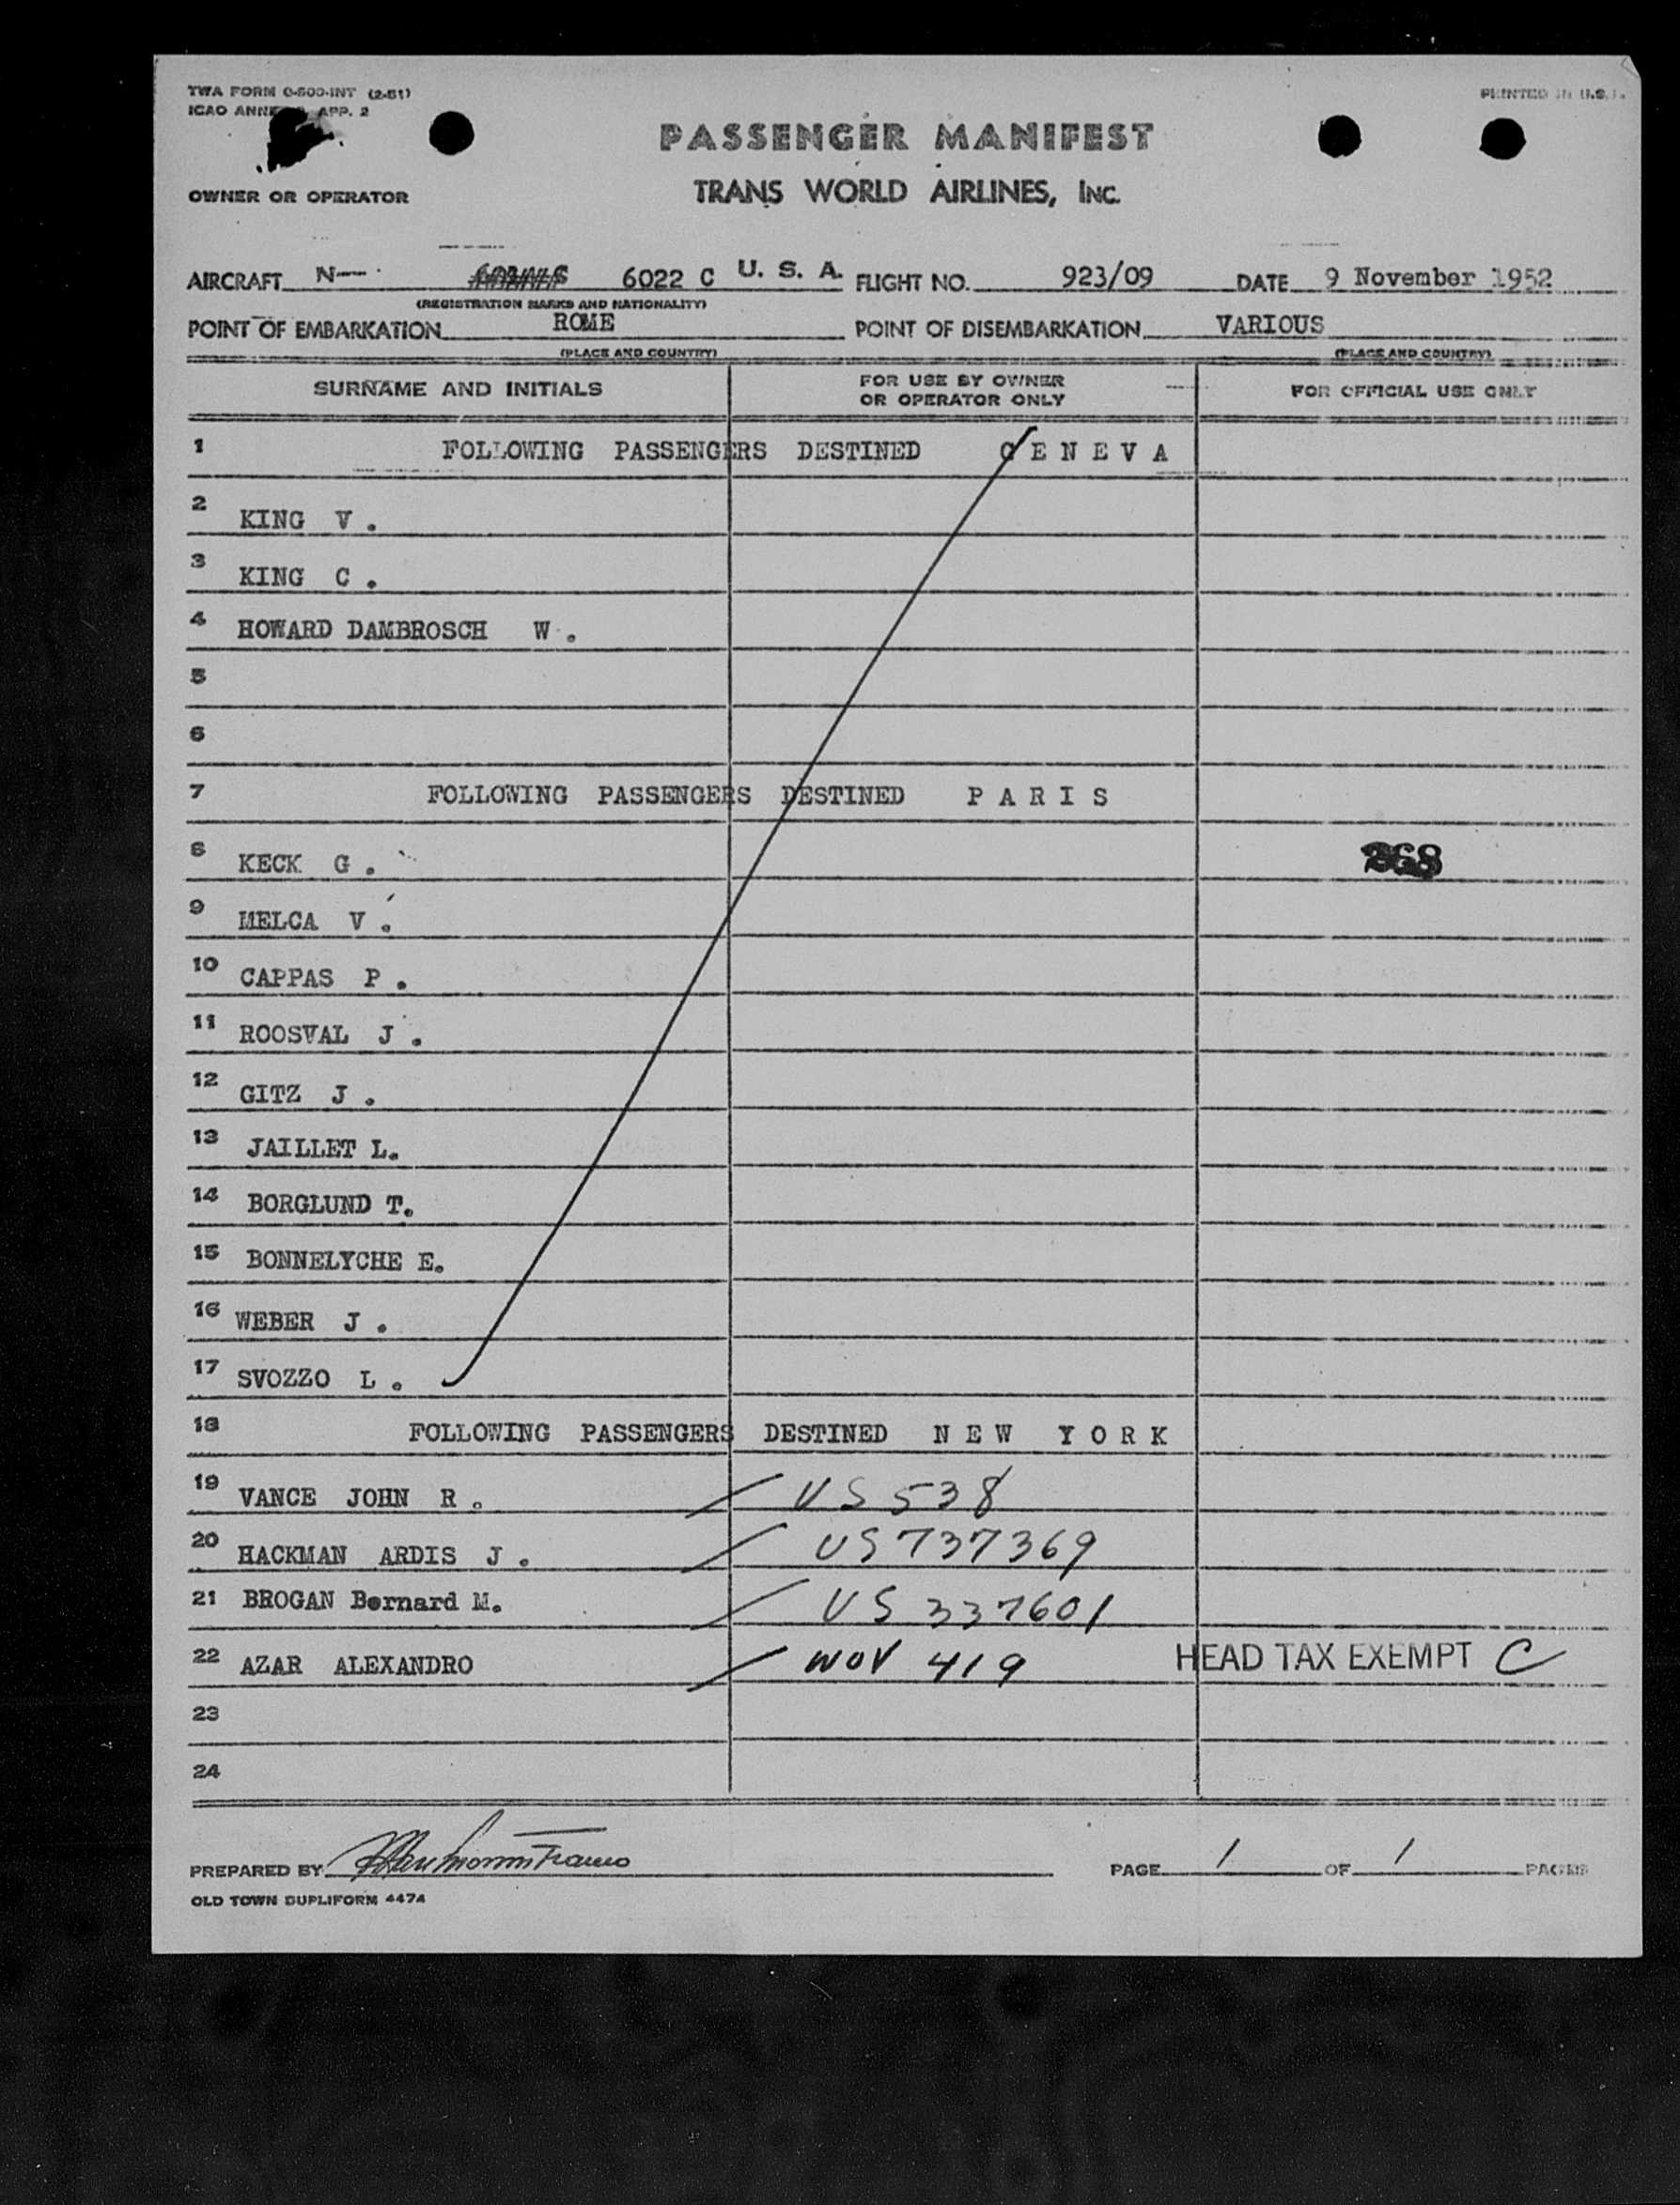 TWA FORM O-500-INT (2-51)
PRINTED IN U.S.A.
ICAO ANNEX APP. 2
PASSENGER MANIFEST
OWNER OR OPERATOR
TRANS WORLD AIRLINES, INC.
AIRCRAFT N— 6022 C U. S. A. FLIGHT NO. 923/09 DATE 9 November 1952
(REGISTRATION MARKS AND NATIONALITY)
POINT OF EMBARKATION ROME POINT OF DISEMBARKATION VARIOUS
(PLACE AND COUNTRY) (PLACE AND COUNTRY)
SURNAME AND INITIALS FOR USE BY OWNER OR OPERATOR ONLY FOR OFFICIAL USE ONLY
1 FOLLOWING PASSENGERS DESTINED G E N E V A
2 KING V .
3 KING C .
4 HOWARD DAMBROSCH W .
5
6
7 FOLLOWING PASSENGERS DESTINED P A R I S
8 KECK G . 368
9 MELCA V .
10 CAPPAS P .
11 ROOSVAL J .
12 GITZ J .
13 JAILLET L.
14 BORGLUND T.
15 BONNELYCHE E.
16 WEBER J .
17 SVOZZO L .
18 FOLLOWING PASSENGERS DESTINED N E W Y O R K
19 VANCE JOHN R . US 538
20 HACKMAN ARDIS J . US 737369
21 BROGAN Bernard M. US 337601
22 AZAR ALEXANDRO NOV 419 HEAD TAX EXEMPT C
23
24
PREPARED BY PAGE 1 OF 1 PAGES
OLD TOWN DUPLIFORM 4474